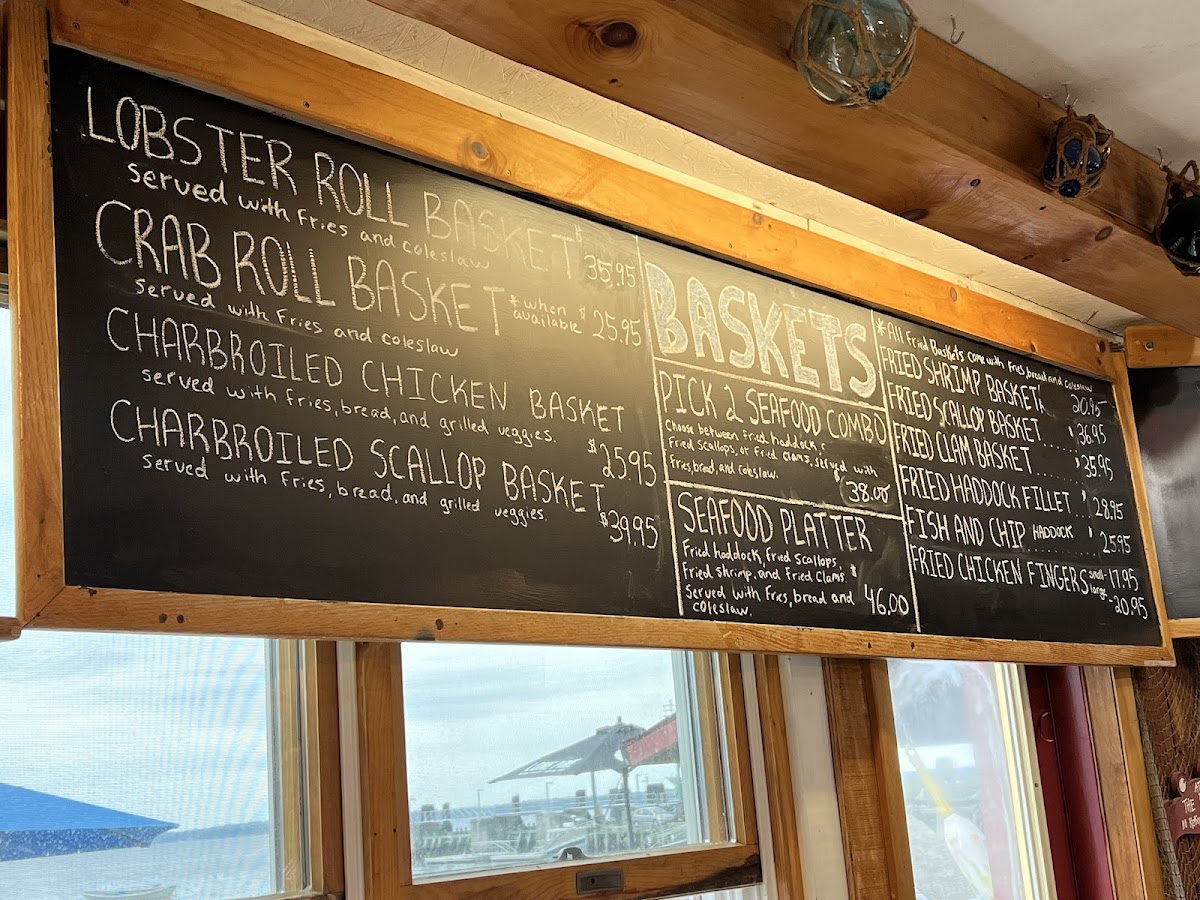 LOBSTER ROLL BASKET $35.95
served with fries and coleslaw
CRAB ROLL BASKET * when available $25.95
served with fries and coleslaw
CHARBROILED CHICKEN BASKET
served with fries, bread, and grilled veggies. $25.95
CHARBROILED SCALLOP BASKET
served with fries, bread, and grilled veggies. $39.95
BASKETS
PICK 2 SEAFOOD COMBO
Choose between fried haddock,
fried scallops, or fried clams, served with
fries, bread, and coleslaw. $38.00
SEAFOOD PLATTER
Fried haddock, fried scallops,
fried shrimp, and fried clams $
Served with fries, bread and 46.00
coleslaw.
*All Fried Baskets come with fries, bread and coleslaw!
FRIED SHRIMP BASKET 20.95
FRIED SCALLOP BASKET.... $36.95
FRIED CLAM BASKET........ $35.95
FRIED HADDOCK FILLET.. $28.95
FISH AND CHIP HADDOCK ........ $25.95
FRIED CHICKEN FINGERS small - 17.95
large - 20.95
THE